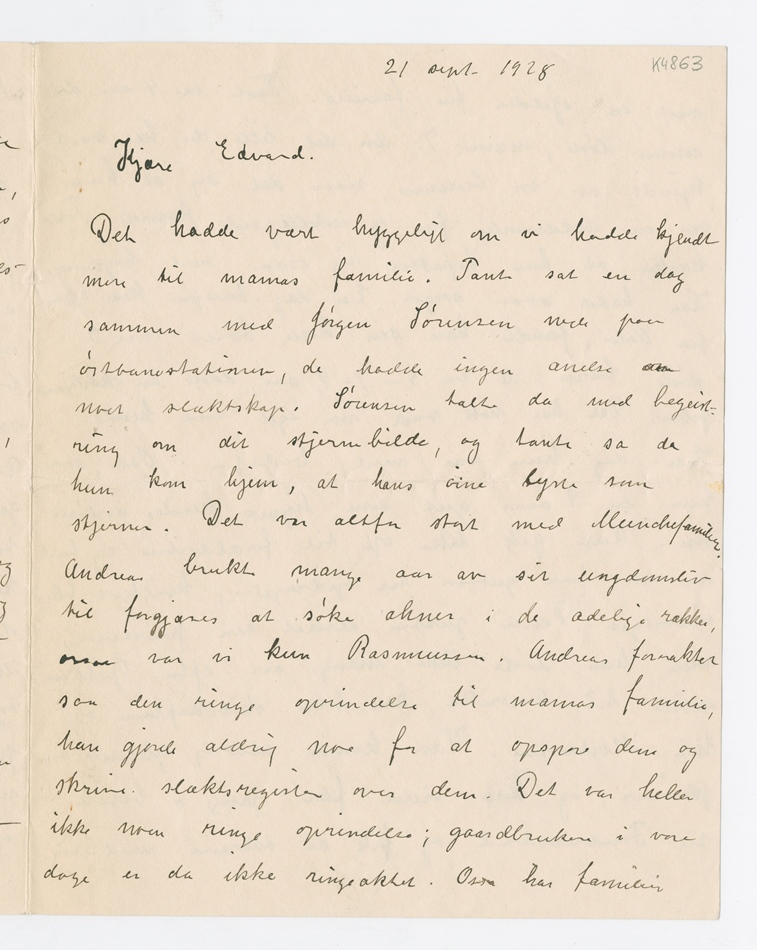 21 sept. 1928
K4863
Kjære Edvard.
Det hadde vært hyggeligt om vi hadde kjendt
mere til mamas familie. Tante sat en dag
sammen med Jørgen Sørensen nede paa
östbanestationen, de hadde ingen anelse
noet slæktskap. Sørensen talte da med begeist-
ring om dit stjernebilde, og tante sa da
hun kom hjem, at hans öine lyste som
stjerner. Det var altfor stort med Munchefamilien.
Andreas brukte mange aar av sit ungdomsliv
til forgjæves at söke ahner i de adelige rækker,
var vi kun Rasmussen. Andreas foraktet
saa den ringe oprindelse til mamas familie,
han gjorde aldrig noe for at opspore dem og
skrive slæktsregister over dem. Det var heller
ikke noen ringe oprindelse; gaardbrukere i vore
dage er da ikke ringeaktet. Ossaa har familien